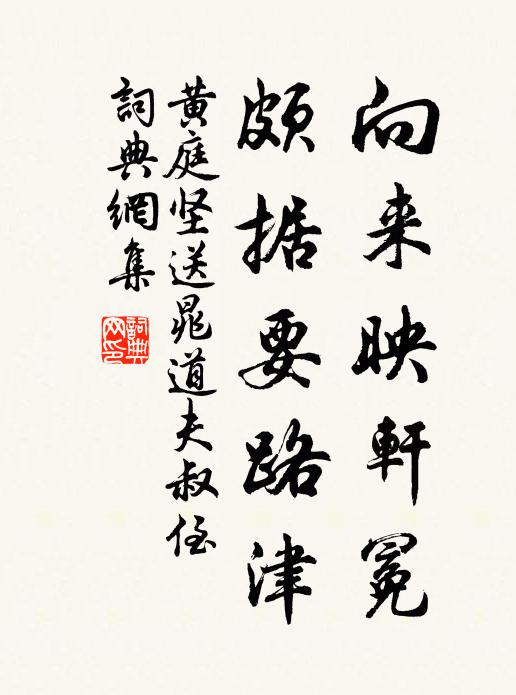 向来映軒冕
頗据要路津
黄庭坚送晁道夫叔侄
詞典網集
詞典网印